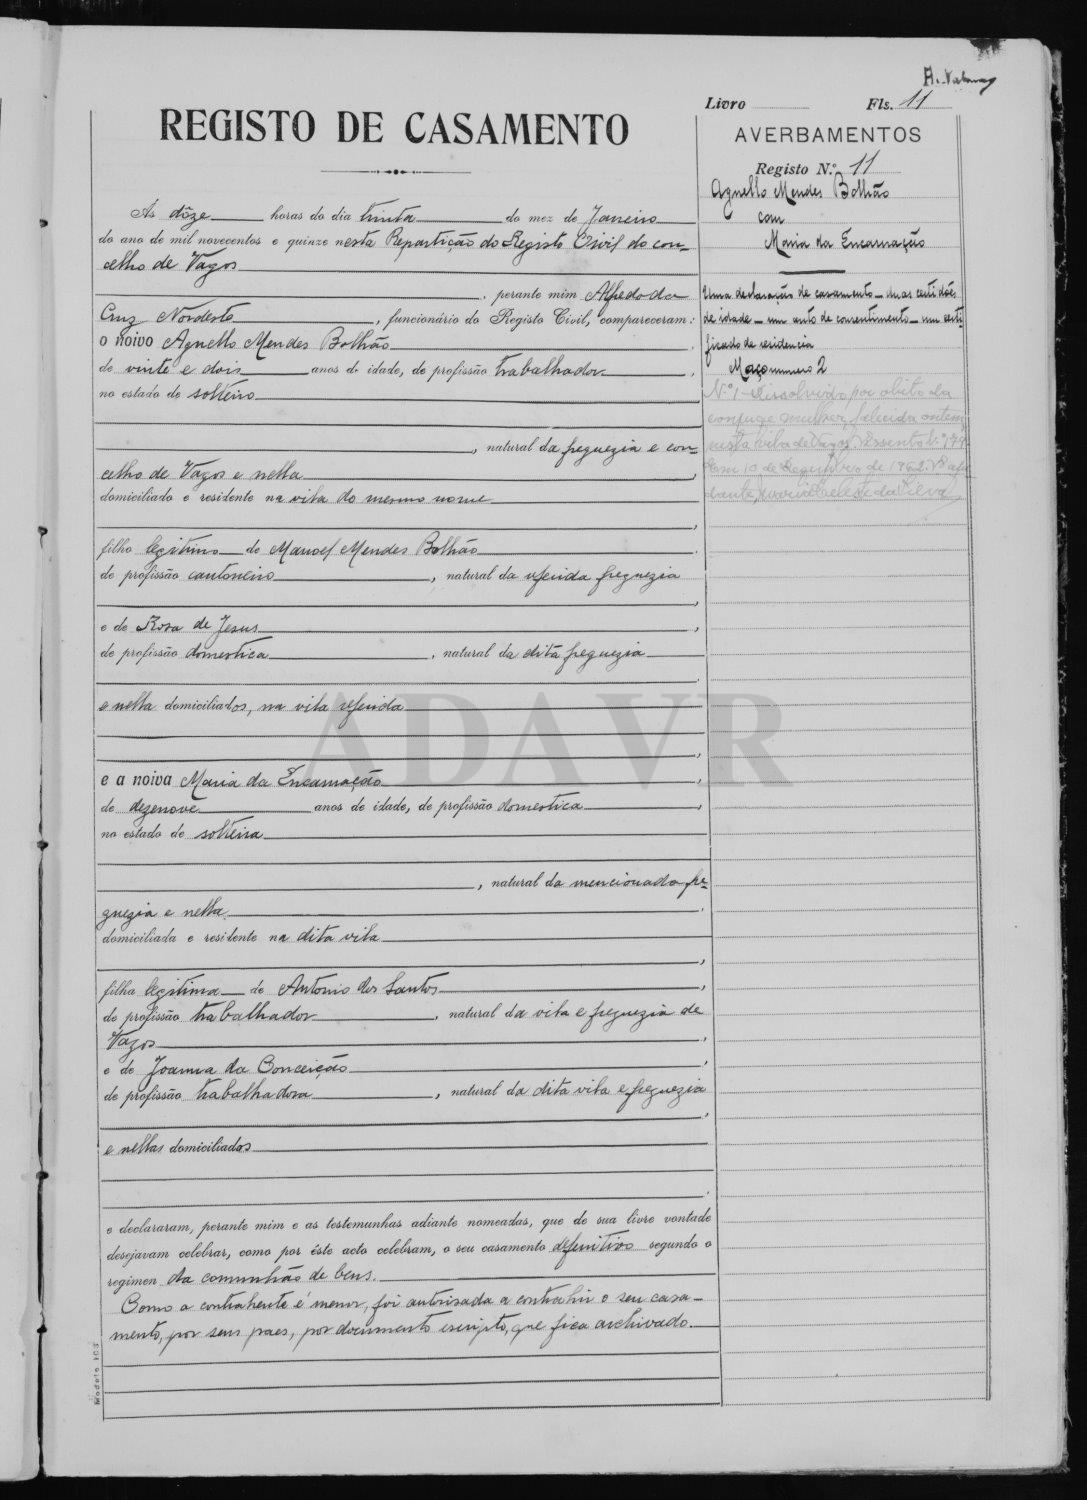 Livro Fls. 11
REGISTO DE CASAMENTO
AVERBAMENTOS
Registo N.º 11
Agnello Mendes Bolhão
com
Maria da Encarnação
Uma declaração de casamento — duas certidões
de idade — um auto de consentimento — um certi-
ficado de residencia
Maço numero 2
Nº 1 – Dissolvido por obito da
conjuge mulher, falecida ontem
nesta vila de Vagos. Assento nº 179
Em 10 de Dezembro de 1962. O aju
dante,
As dôze horas do dia trinta do mez de Janeiro
do ano de mil novecentos e quinze nesta Repartição do Registo Civil do con-
celho de Vagos
, perante mim Alfredo da
Cruz Nordeste, funcionário do Registo Civil, compareceram:
o noivo Agnello Mendes Bolhão
de vinte e dois anos de idade, de profissão trabalhador,
no estado de solteiro
, natural da freguezia e con-
celho de Vagos e nella
domiciliado e residente na vila do mesmo nome
filho legitimo de Manoel Mendes Bolhão
de profissão cantoneiro, natural da referida freguezia
e de Rosa de Jesus,
de profissão domestica, natural da dita freguezia
e nella domiciliados, na vila referida
e a noiva Maria da Encarnação
de dezenove anos de idade, de profissão domestica,
no estado de solteira
, natural da mencionada fre-
guezia e nella
domiciliada e residente na dita vila
filha legitima de Antonio dos Santos,
de profissão trabalhador, natural da vila e freguezia de
Vagos
e de Joanna da Conceição
de profissão trabalhadora, natural da dita vila e freguezia
e nellas domiciliados
e declararam, perante mim e as testemunhas adiante nomeadas, que de sua livre vontade
desejavam celebrar, como por êste acto celebram, o seu casamento definitivo segundo o
regimen da comunhão de bens.
Como a contrahente é menor, foi autorisada a contrahir o seu casa-
mento, por seus paes, por documento escripto, que fica archivado.
Modelo 103
ADAVR